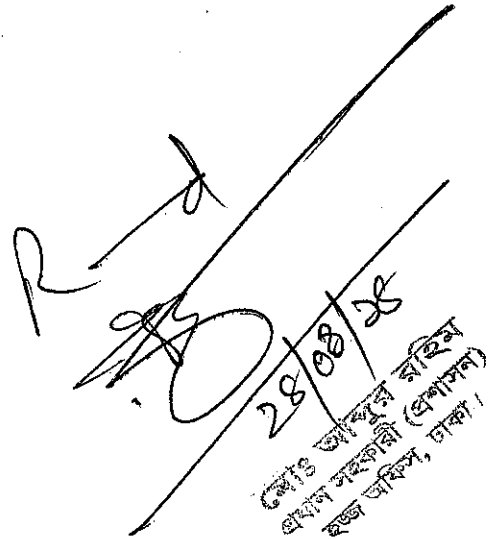 ২৪/০৪/২৫
মোঃ আব্দুর রহিম
প্রধান সহকারী (প্রশাসন)
হজ্জ অফিস, ঢাকা।